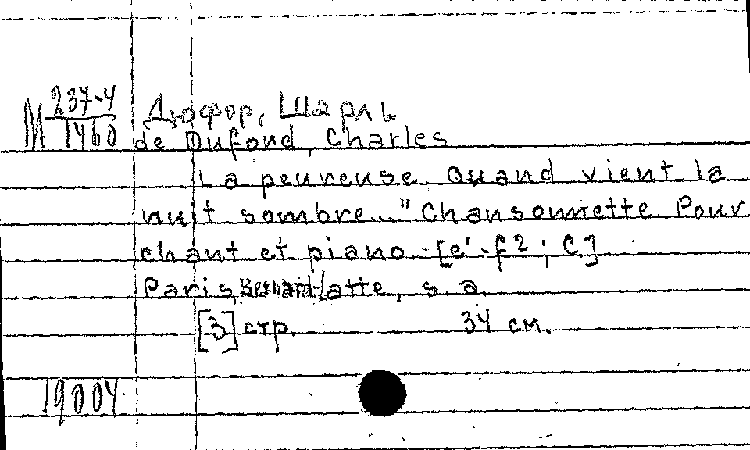 М 237-4/1460 Дюфор, Шарль
de Dufond, Charles
La peureuse. Quand vient la
nuit sombre..." Chansonnette Pour
chant et piano. [e'-f2; C]
Paris, latte, s. a.
[3] стр. 34 см.
19004